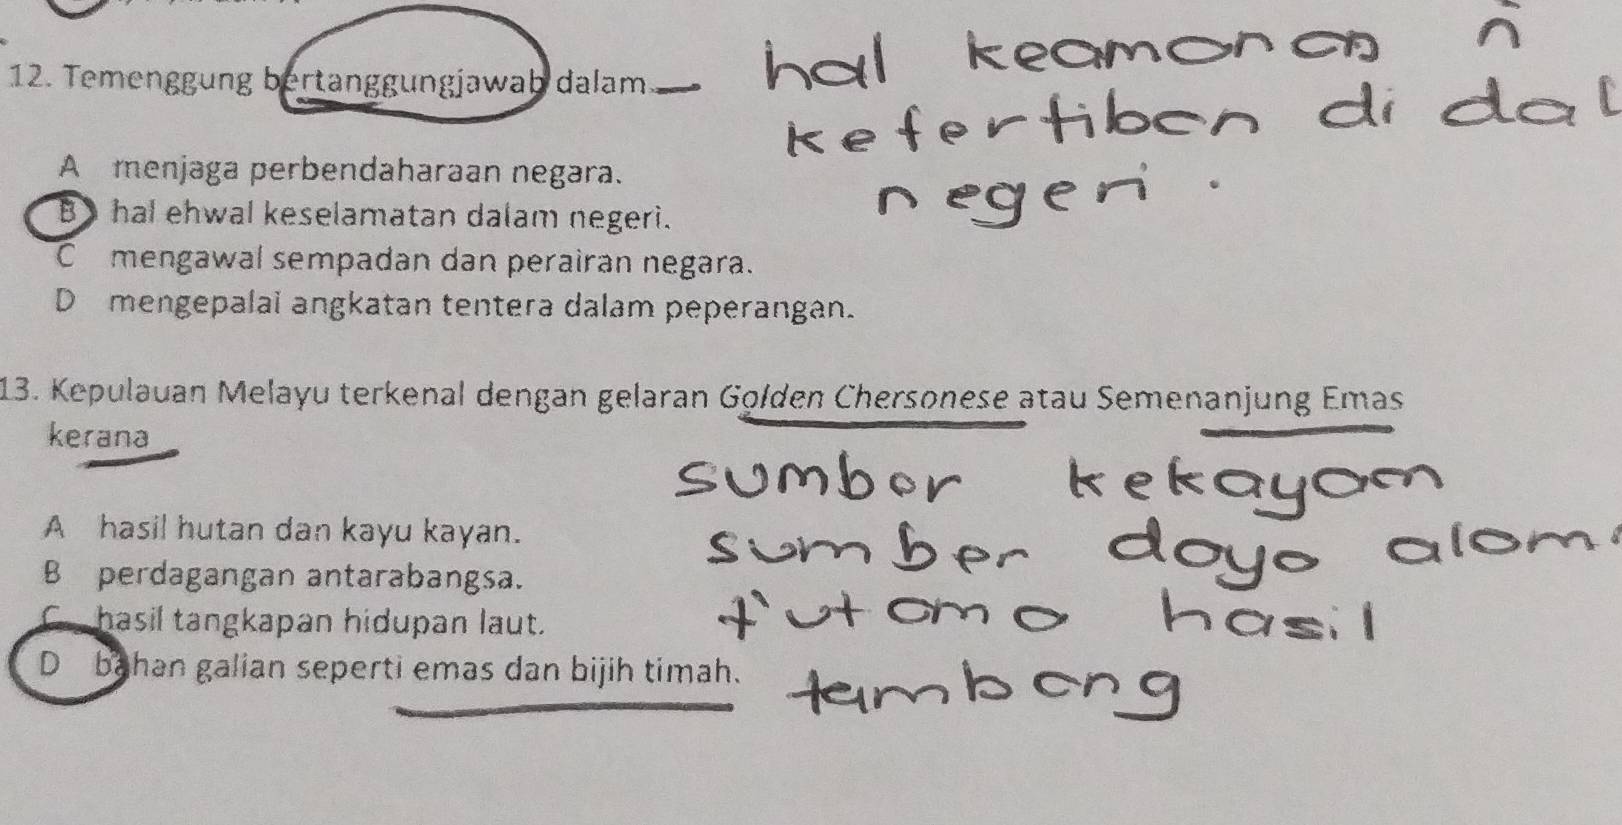 12. Temenggung bertanggungjawab dalam
hal keamanan
ketertiban di dal
negeri.
A menjaga perbendaharaan negara.
B hal ehwal keselamatan dalam negeri.
C mengawal sempadan dan perairan negara.
D mengepalai angkatan tentera dalam peperangan.
13. Kepulauan Melayu terkenal dengan gelaran Golden Chersonese atau Semenanjung Emas
kerana
sumber kekayaan
A hasil hutan dan kayu kayan.
sumber daya alam
B perdagangan antarabangsa.
C hasil tangkapan hidupan laut.
utama hasil
D bahan galian seperti emas dan bijih timah.
tambang